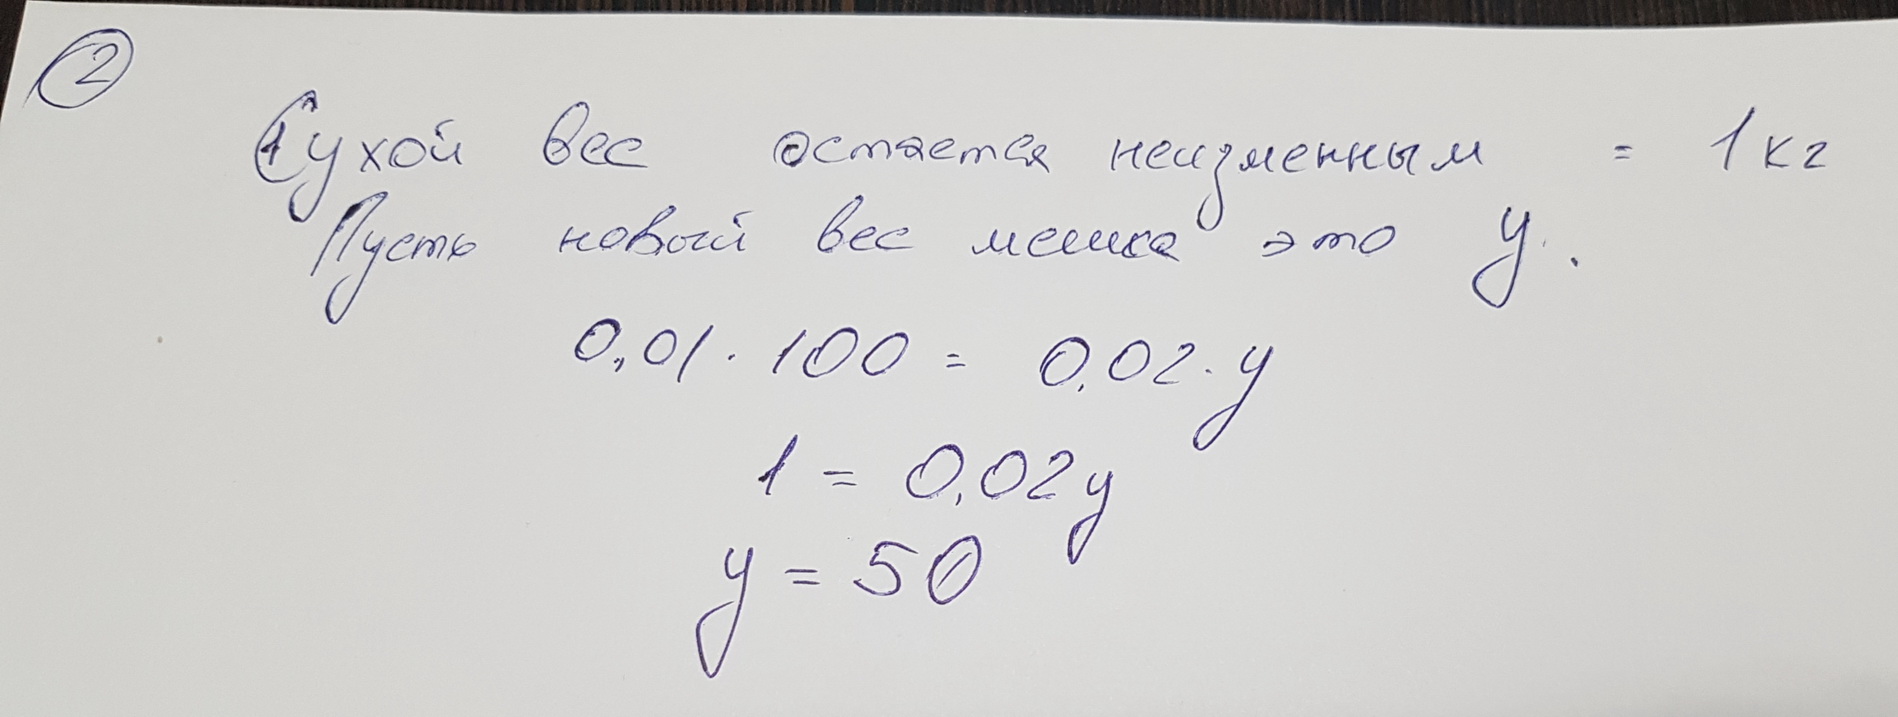 2
Сухой вес остается неизменным = 1 кг
Пусть новый вес мешка это y.
0,01 · 100 = 0,02 · y
1 = 0,02y
y = 50